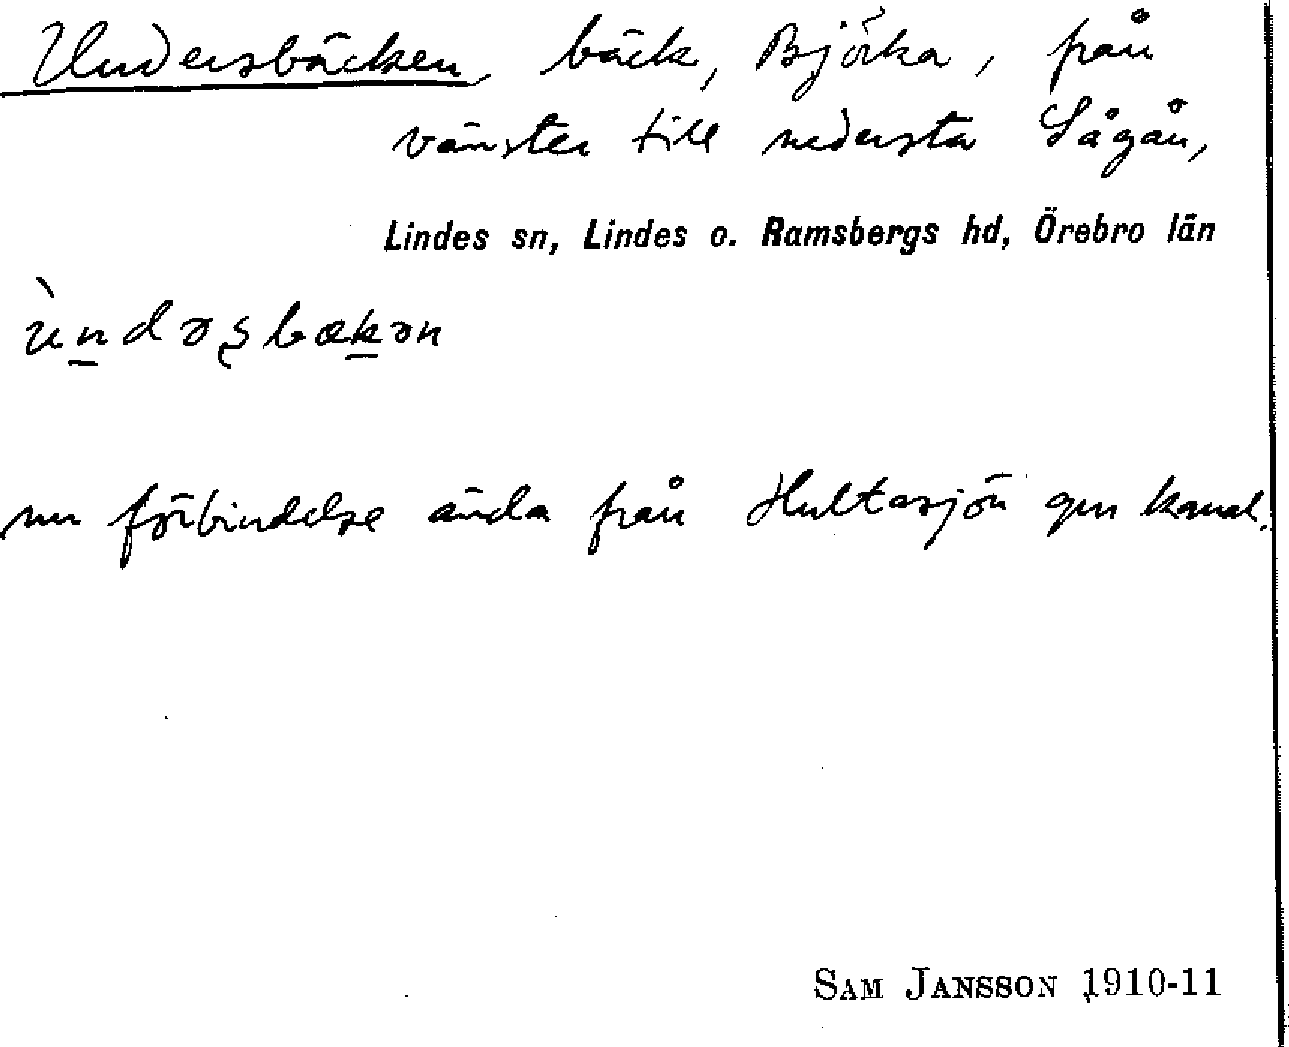 Undersbäcken, bäck, Björka, från
vänster till nedersta Sågån,
Lindes sn, Lindes o. Ramsbergs hd, Örebro län
ùndəʂbækən
nu förbindelse ända från Hultasjön gm kanal.
SAM JANSSON 1910-11